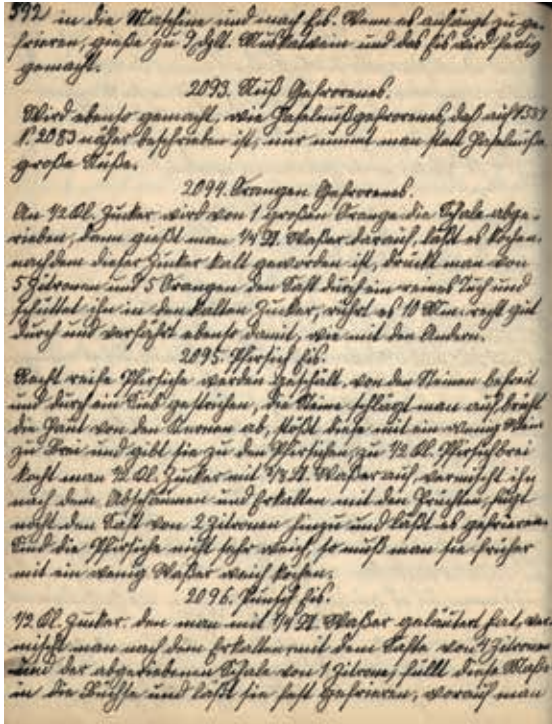 592 in die Maschine und mach Eis. Wenn es anfängt zu ge-
frieren, gieße zu 2 dzlt. Muskatwein und das Eis wird fertig
gemacht.
2093. Nuß Gefrorenes.
Wird ebenso gemacht, wie Haselnußgefrorenes, daß auf S 589
N. 2083 näher beschrieben ist, nur nimmt man statt Haselnüße
große Nüße.
2094. Orangen Gefrorenes.
An 1/2 Kl. Zucker wird von 1 großen Orange die Schale abge-
rieben, dann gießt man 1/4 Lt. Waßer darauf, läßt es kochen,
nachdem dieser Zucker kalt geworden ist, drückt man von
5 Zitronen und 5 Orangen den Saft durch ein reines Tuch und
schüttet ihn in den kalten Zucker, rührt es 10 Min. recht gut
durch und verfährt ebenso damit, wie mit den Andern.
2095. Pfirsich Eis.
Recht reife Pfirsiche werden geschält, von den Steinen befreit
und durch ein Sieb gestrichen, die Steine schlägt man auf, brüht
die Haut von den Kernen ab, stoßt diese mit ein wenig
zu Brei und gibt sie zu den Pfirsichen, zu 1/2 Kl. Pfirsichbrei
kocht man 1/2 Kl. Zucker mit 1/8 Lt. Waßer auf, vermischt ihn
nach dem Abschäumen und Erkalten mit den Früchten, fügt
noch den Saft von 2 Zitronen hinzu und läßt es gefrieren.
Sind die Pfirsiche nicht sehr weich, so muß man sie früher
mit ein wenig Waßer weich kochen.
2096. Punsch Eis.
1/2 Kl. Zucker, den man mit 1/4 Lt. Waßer geläutert hat, ver-
mischt man nach dem Erkalten mit dem Safte von 4 Zitronen
und der abgeriebenen Schale von 1 Zitrone, füllt diese Maße
in die Büchse und läßt sie fest gefrieren, worauf man